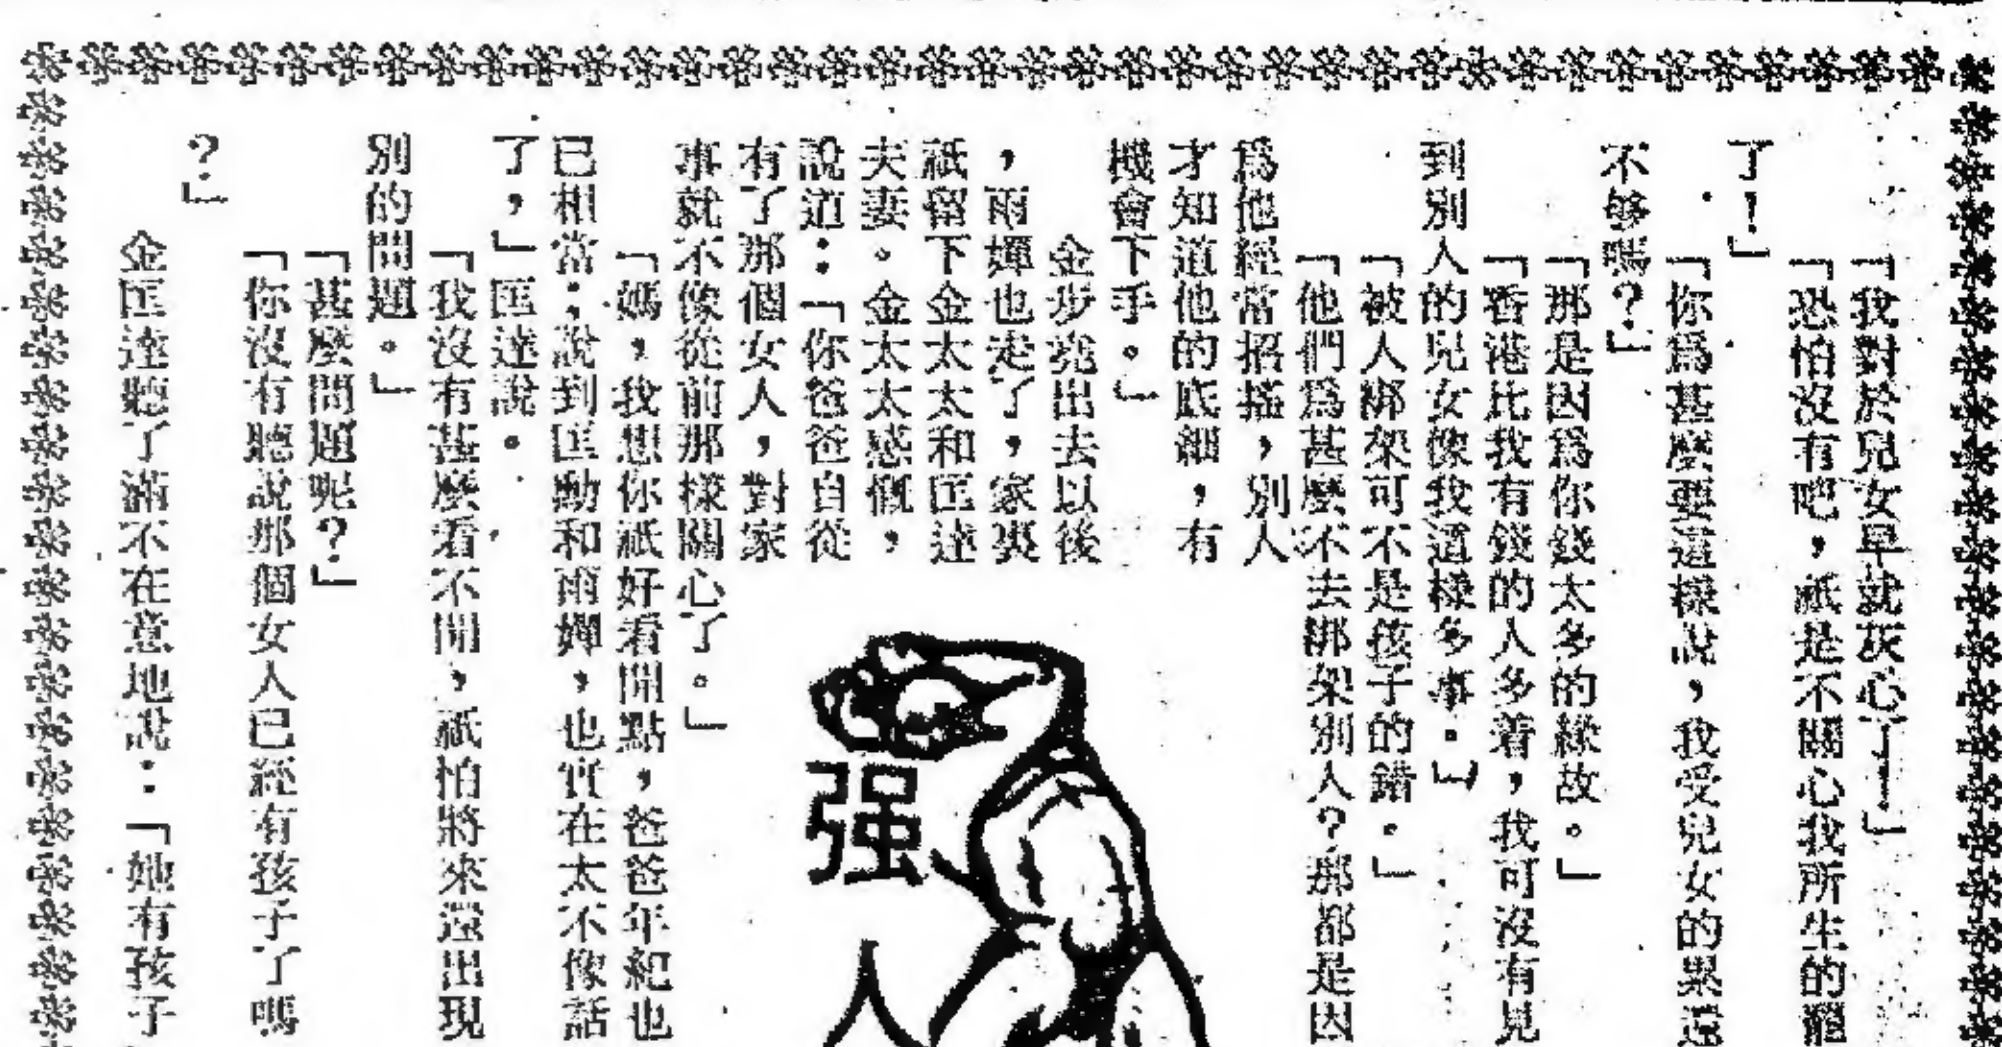 「我對於兒女早就灰心了！」
「恐怕沒有吧，祇是不關心我所生的罷
了！」
「你爲甚麼要這樣說，我受兒女的累還
不够嗎？」
「那是因爲你錢太多的緣故。」
「香港比我有錢的人多着，我可沒有見
到別人的兒女像我這樣多事。」
「被人綁架可不是孩子的錯。」
「他們爲甚麼不去綁架別人？那都是因
爲他經常招搖，別人
才知道他的底細，有
機會下手。」
金步堯出去以後
，雨嬋也走了，家裏
祇留下金太太和匡達
夫妻。金太太感慨，
說道：「你爸爸自從
有了那個女人，對家
事就不像從前那樣關心了。」
「媽，我想你祇好看開點，爸爸年紀也
已相當；說到匡勳和雨嬋，也實在太不像話
了，」匡達說。
「我沒有甚麼看不開，祇怕將來還出現
別的問題。」
「甚麼問題呢？」
「你沒有聽說那個女人已經有孩子了嗎
？」
金匡達聽了滿不在意地說：「她有孩子
强
人